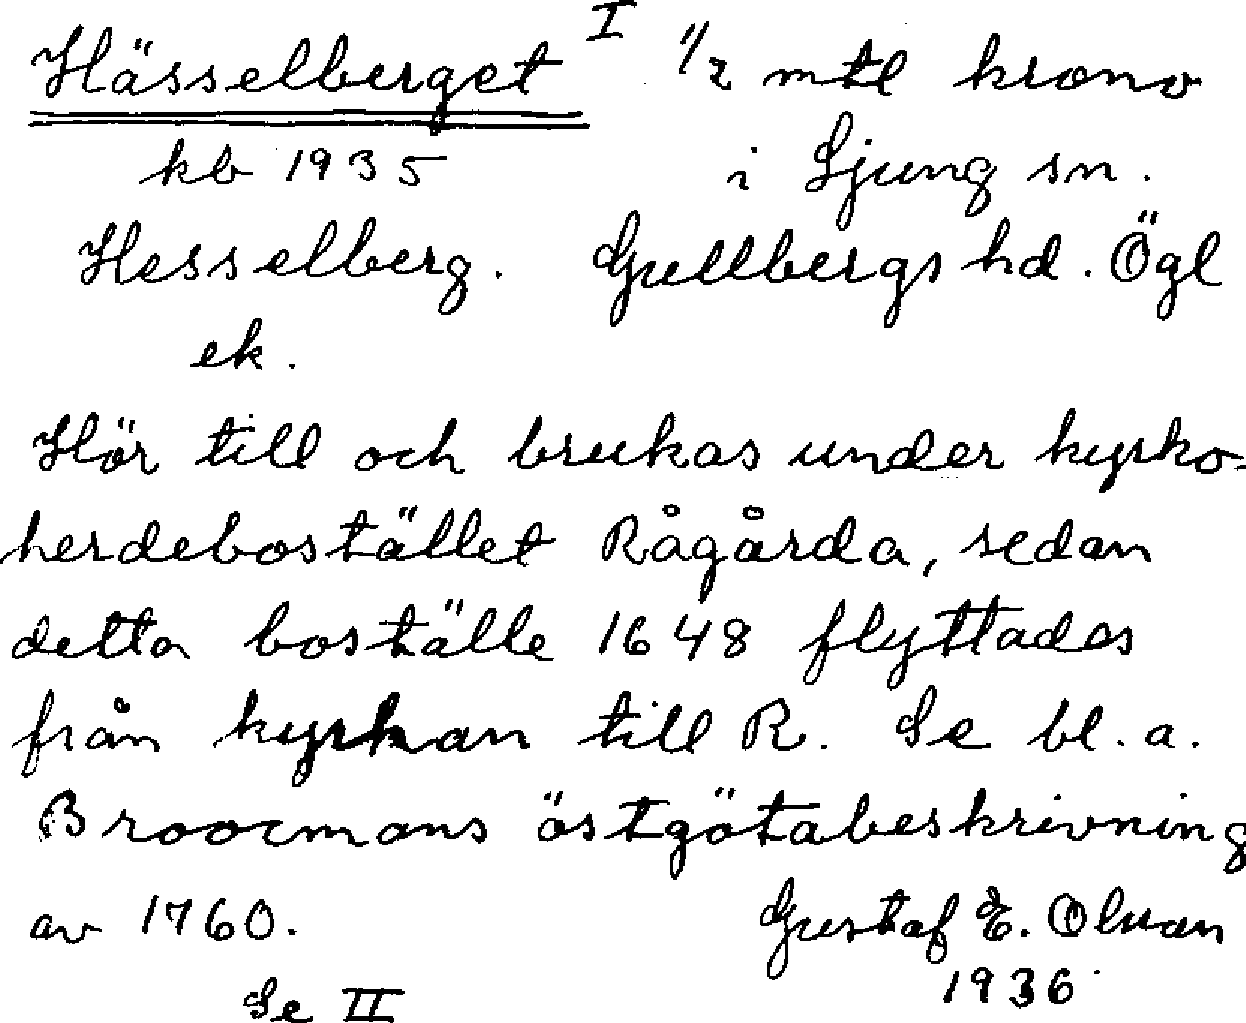 Hässelberget I 1/2 mtl krono
kb 1935 i Ljung sn.
Hesselberg. Gullbergs hd. Ögl
ek.
Hör till och brukas under kyrko-
herdebostället Rågårda, sedan
detta boställe 1648 flyttades
från kyrkan till R. Se bl. a.
Broocmans östgötabeskrivning
av 1760. Gustaf E. Olsson
Se II 1936